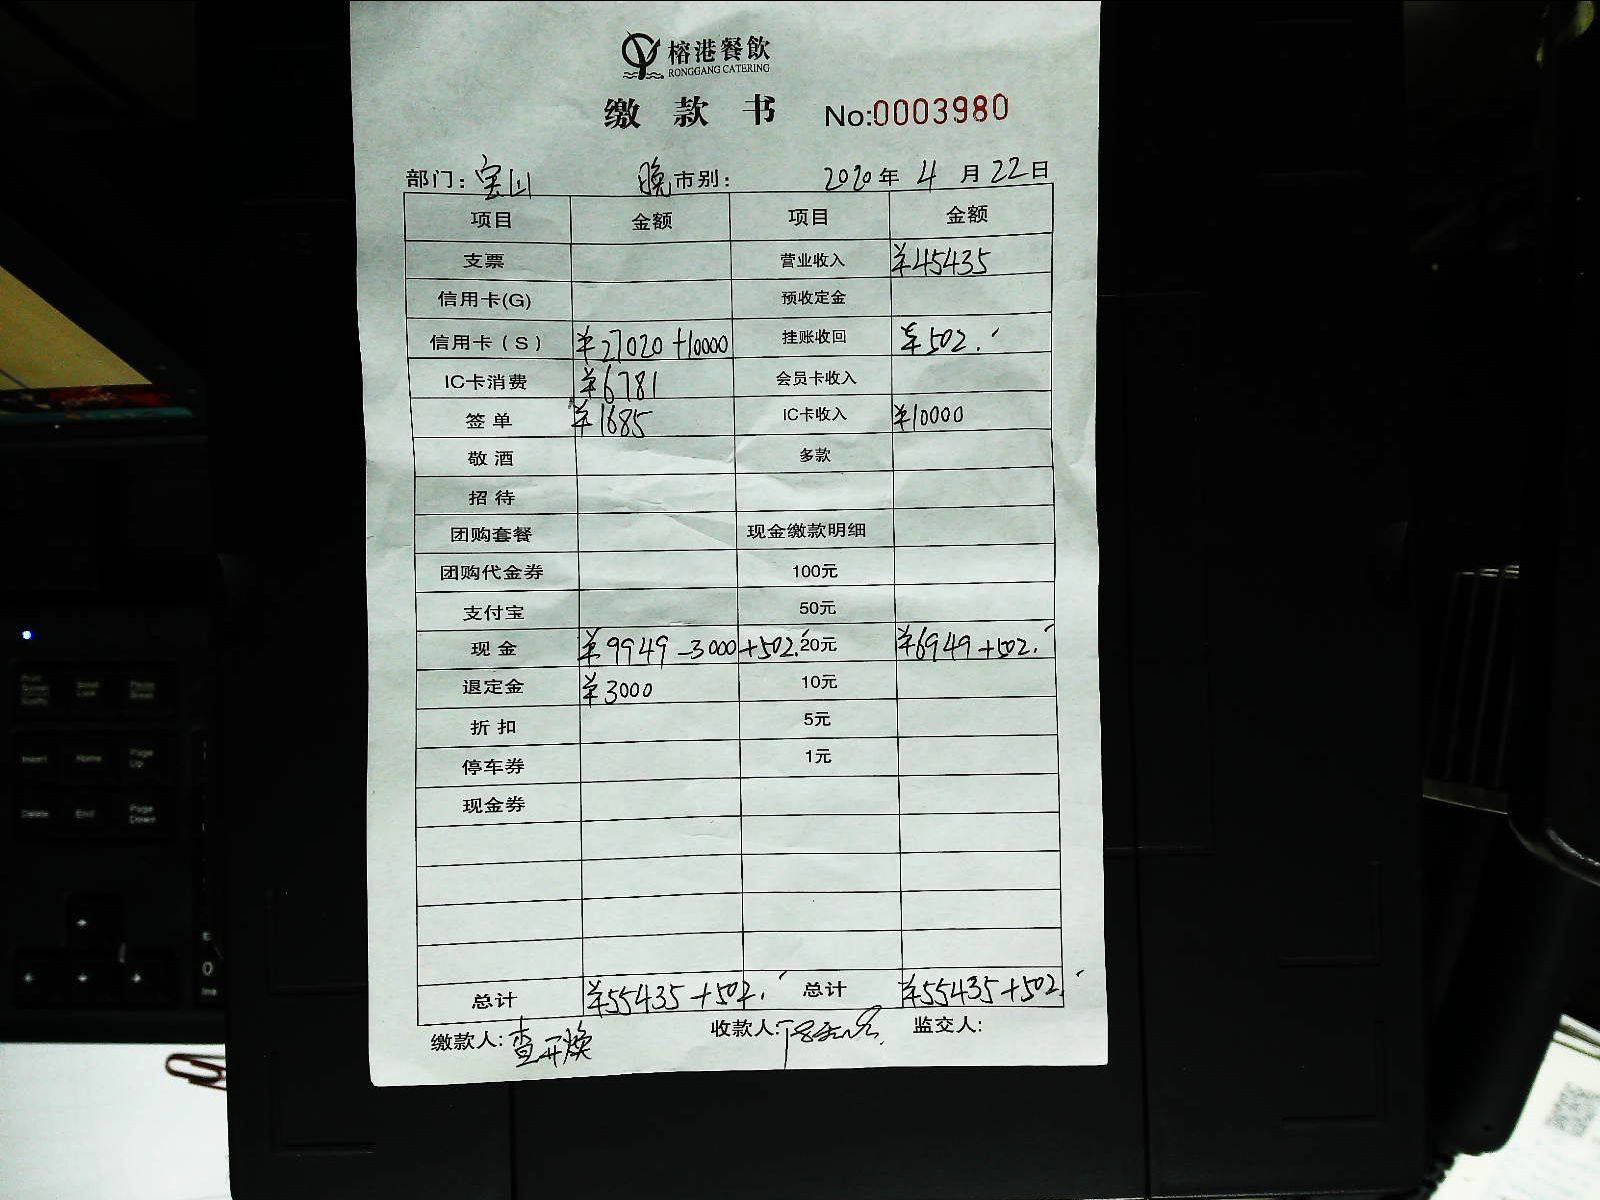 榕港餐飲
RONGGANG CATERING
缴款书 No:0003980
部门:宝山 晚市别: 2020年4月22日
项目 金额 项目 金额
支票 营业收入 ¥45435
信用卡(G) 预收定金
信用卡(S) ¥27020+10000 挂账收回 ¥502.
IC卡消费 ¥6781 会员卡收入
签单 ¥1685 IC卡收入 ¥10000
敬酒 多款
招待
团购套餐 现金缴款明细
团购代金券 100元
支付宝 50元
现金 ¥9949-3000+502. 20元 ¥6949+502.
退定金 ¥3000 10元
折扣 5元
停车券 1元
现金券
总计 ¥55435+502. 总计 ¥55435+502.
缴款人:查开焕 收款人: 监交人:
Page Up
Insert Home
Delete End Page Down